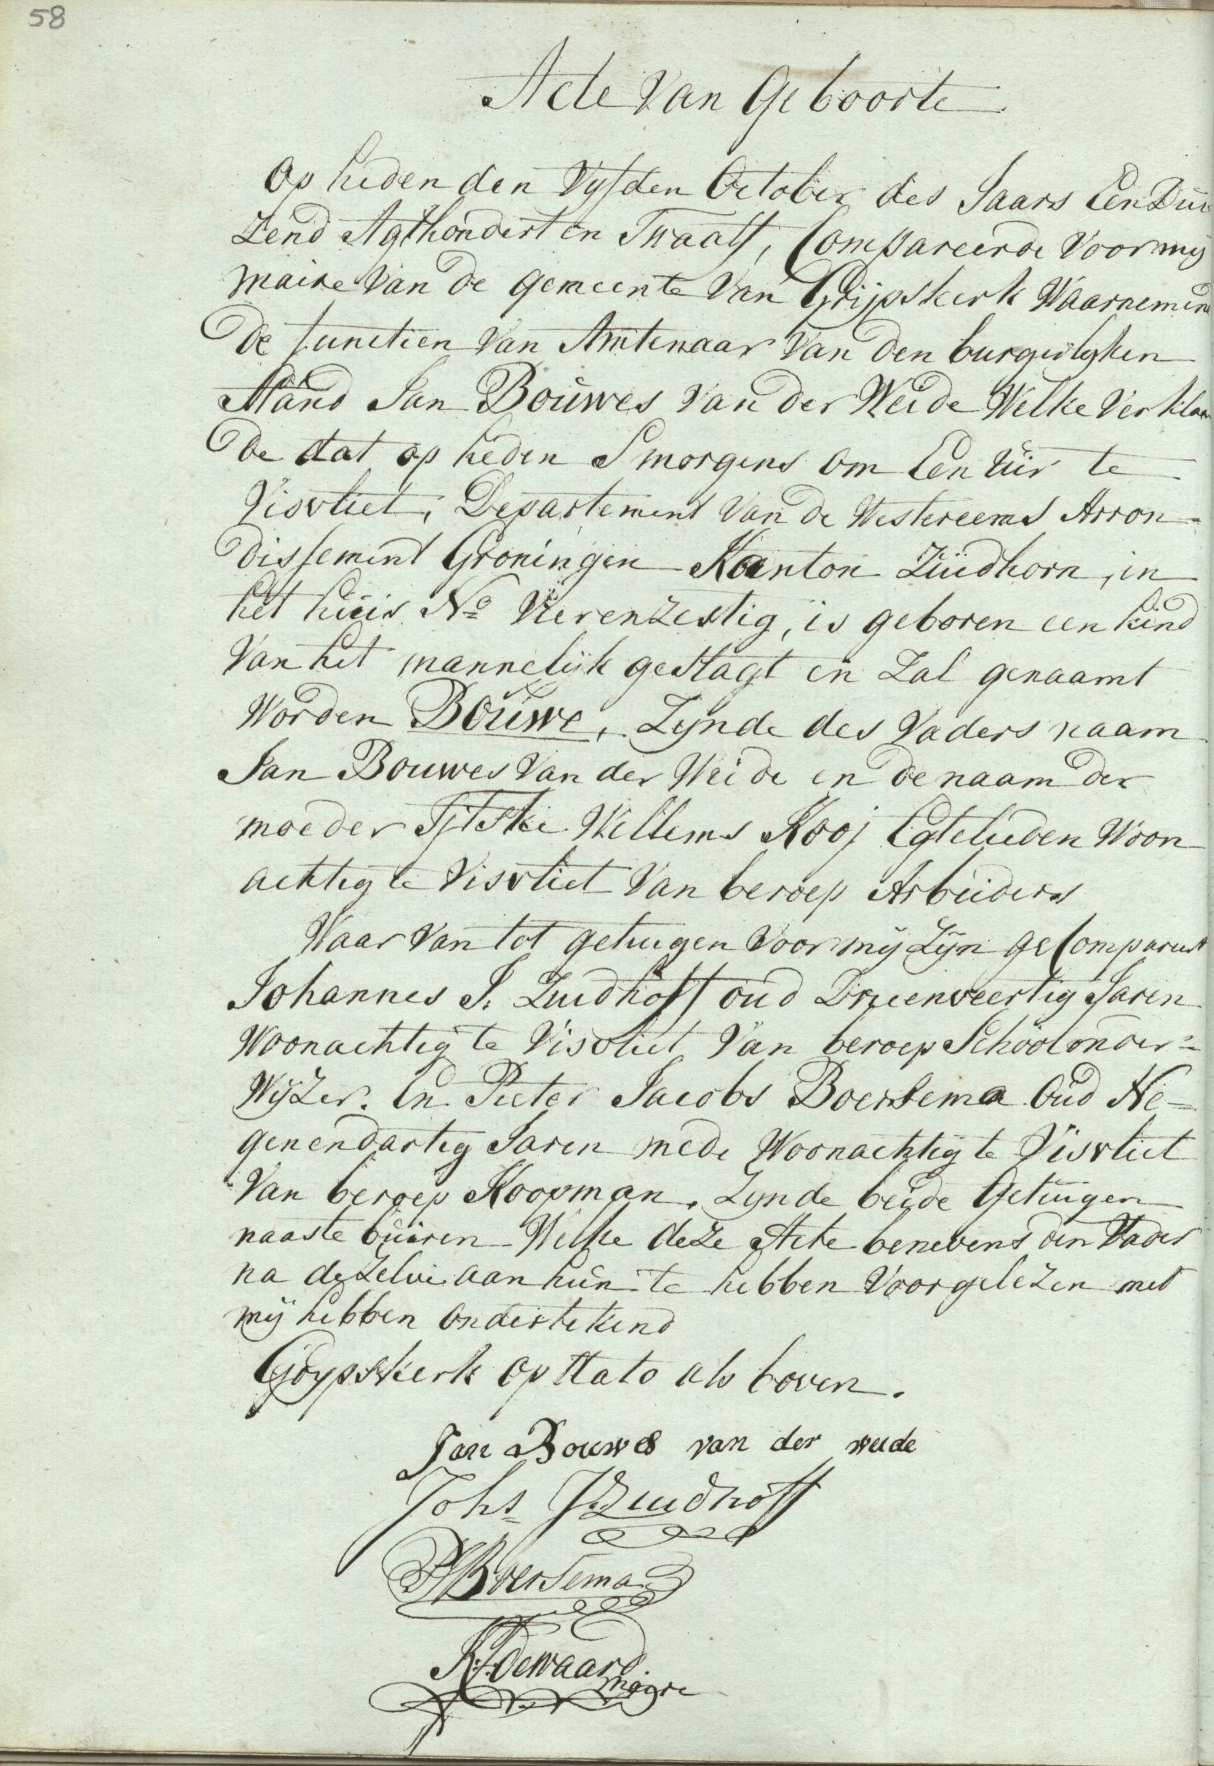 58
Acte Van Geboorte
Op heden den Vyfden October des Jaars Een Dui
Zend Agthondert en Twaalf, Compareerde voor mij
maire Van de gemeente Van Grijpskerk Waarnemen
De functien Van Amtenaar Van den burgerlyken
Stand Jan Bouwes Van der Weide Welke Verklaar
De dat op heden Smorgens om Een Uir te
Visvliet, Departement Van de Westereems Arron-
dissement Groningen Kanton Zuidhorn, in
het huis No Vierenzestig, is geboren een kind
Van het mannelijk geslagt en Zal genaamt
Worden Bouwe, Zynde des Vaders naam
Jan Bouwes Van der Weide en de naam der
moeder Tjitske Willems Kooj Egtelieden Woon
achtig te Visvliet Van beroep Arbeiders
Waar Van tot getuigen Voor mij Zijn geCompareert
Johannes J. Zuidhoff oud Drieenveertig Jaren
Woonachtig te Visvliet Van beroep Schoolonder=
Wijzer. En Pieter Jacobs Boersema Oud Ne=
genendartig Jaren mede Woonachtig te Visvliet
Van beroep Koopman, Zynde beide Getuigen
naaste buiren Welke deze Acte benevens den Vader
na dezelve aan hun te hebben Voorgelezen met
mij hebben ondertekend
Grypskerk op Dato als boven.
Jan Bouwes van der weide
Johs J. Zuidhoff
PJ Boersema
K J de waard
maire